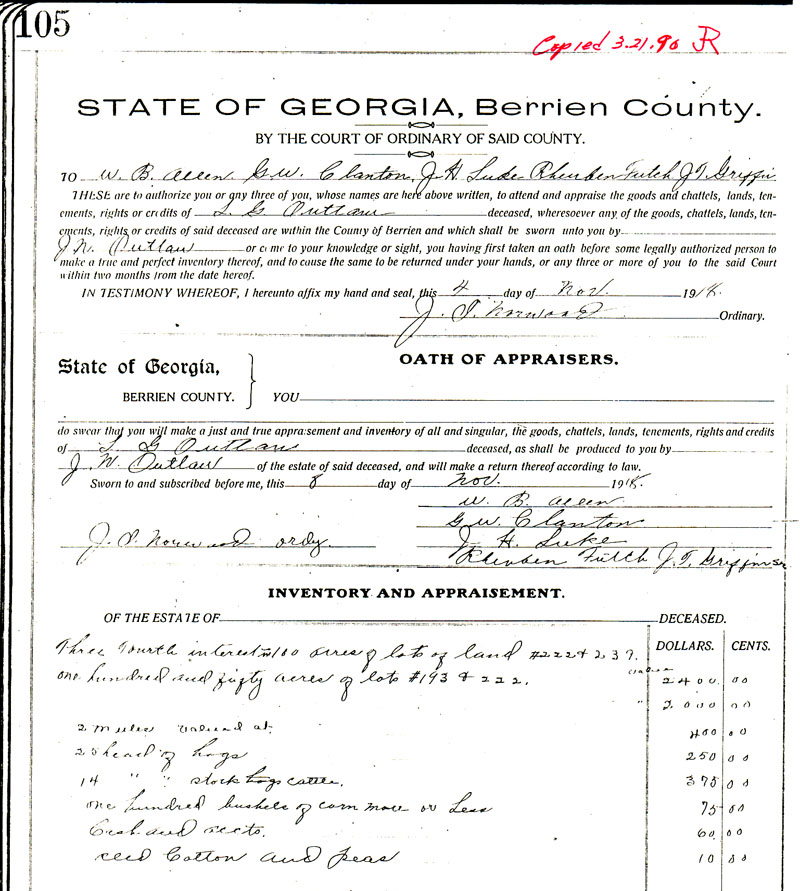 105
Copied 3.21.90 JR
STATE OF GEORGIA, Berrien County.
BY THE COURT OF ORDINARY OF SAID COUNTY.
TO W. B. Allen G. W. Clanton, J H Luke Rheuben Futch J. T. Griffin
THESE are to authorize you or any three of you, whose names are here above written, to attend and appraise the goods and chattels, lands, ten-
ements, rights or credits of L G Outlaw deceased, wheresoever any of the goods, chattels, lands, ten-
ements, rights or credits of said deceased are within the County of Berrien and which shall be sworn unto you by
J. W. Outlaw or come to your knowledge or sight, you having first taken an oath before some legally authorized person to
make a true and perfect inventory thereof, and to cause the same to be returned under your hands, or any three or more of you to the said Court
within two months from the date hereof.
IN TESTIMONY WHEREOF, I hereunto affix my hand and seal, this 4 day of Nov. 1918.
J. P. Norwood Ordinary.
OATH OF APPRAISERS.
State of Georgia,
BERRIEN COUNTY. YOU
do swear that you will make a just and true appraisement and inventory of all and singular, the goods, chattels, lands, tenements, rights and credits
of L G Outlaw deceased, as shall be produced to you by
J. W. Outlaw of the estate of said deceased, and will make a return thereof according to law.
Sworn to and subscribed before me, this 8 day of Nov. 1918.
W. B. Allen
G. W. Clanton
J. P. Norwood ordy. J. H. Luke
Rheuben Futch J. T. Griffin Sr
INVENTORY AND APPRAISEMENT.
OF THE ESTATE OF DECEASED. DOLLARS. CENTS.
Three Fourth interest 100 acres of lots of land #222 & 237.
one hundred and fifty acres of lots #193 & 222. 2400 00
" 2000 00
2 mules valued at 400 00
25 head of hogs 250 00
14 " " stock hogs cattle. 375 00
one hundred bushels of corn more or Less 75 00
Cash and 60 00
seed Cotton and peas 10 00